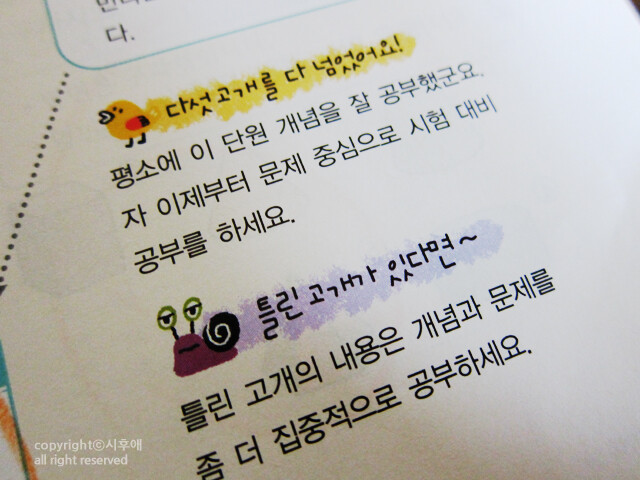 다.
다섯고개를 다 넘었어요!
평소에 이 단원 개념을 잘 공부했군요.
자 이제부터 문제 중심으로 시험 대비
공부를 하세요.
틀린고개가 있다면~
틀린 고개의 내용은 개념과 문제를
좀 더 집중적으로 공부하세요.
copyrightⓒ시후애
all right reserved